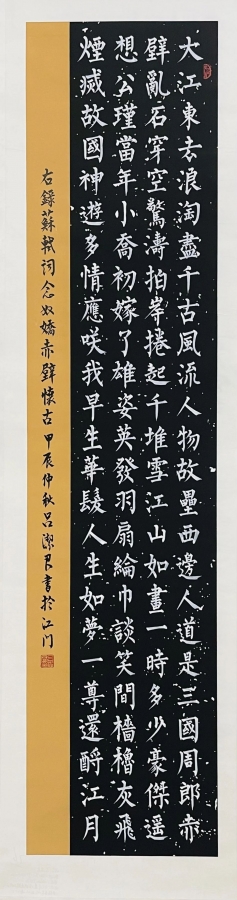 大江東去浪淘盡千古風流人物故壘西邊人道是三國周郎赤
壁亂石穿空驚濤拍岸捲起千堆雪江山如畫一時多少豪傑遥
想公瑾當年小喬初嫁了雄姿英發羽扇綸巾談笑間檣櫓灰飛
煙滅故國神遊多情應咲我早生華髮人生如夢一尊還酹江月
右錄蘇軾詞念奴嬌赤壁懷古甲辰仲秋吕潔君書於江门